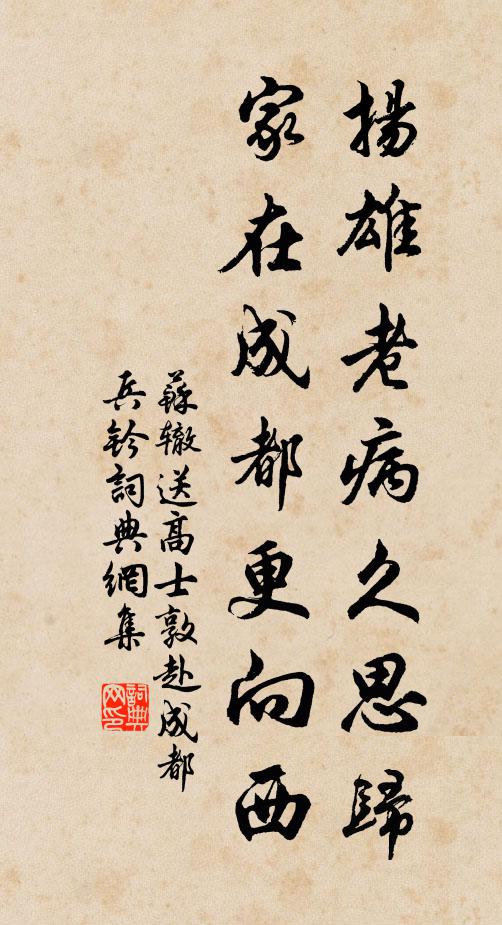 揚雄老病久思歸
家在成都更向西
蘇轍送高士敦赴成都
兵鈐詞典網集
詞典网印